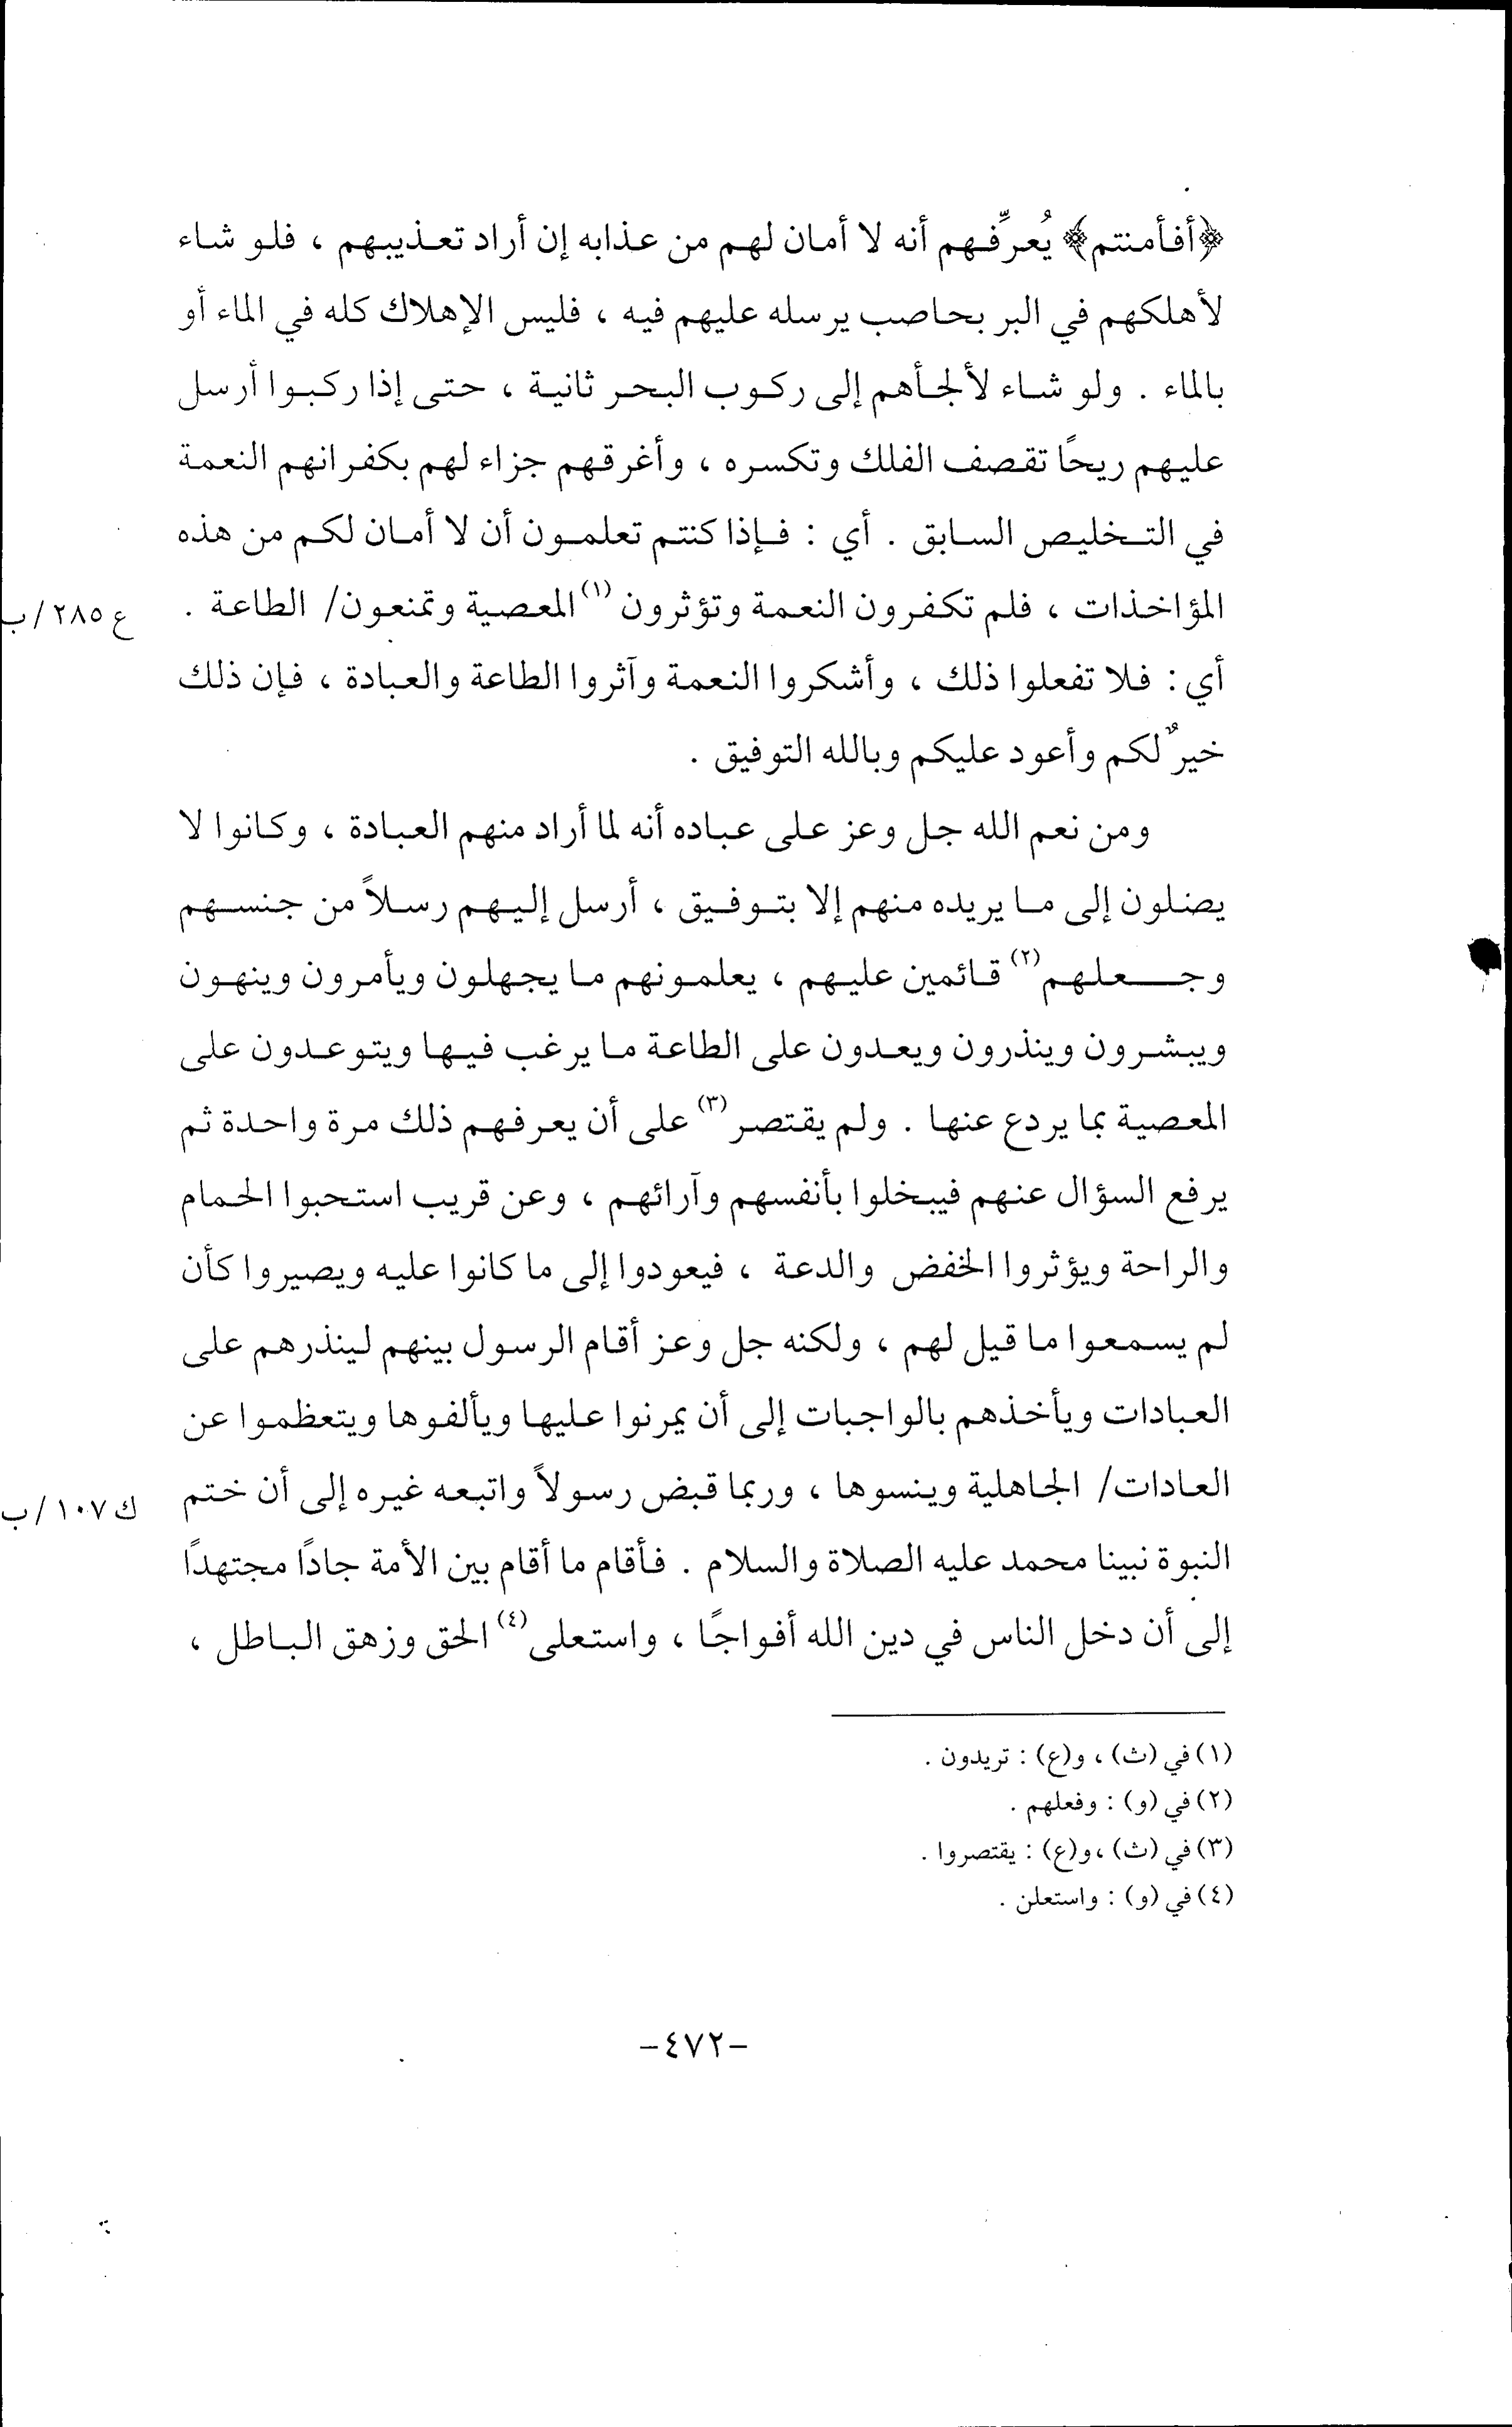 ﴿أفأمنتم﴾ يُعرِّفهم أنه لا أمان لهم من عذابه إن أراد تعذيبهم ، فلو شاء
لأهلكهم في البر بحاصب يرسله عليهم فيه ، فليس الإهلاك كله في الماء أو
بالماء . ولو شاء لألجأهم إلى ركوب البحر ثانية ، حتى إذا ركبوا أرسل
عليهم ريحًا تقصف الفلك وتكسره ، وأغرقهم جزاء لهم بكفرانهم النعمة
في التخليص السابق . أي : فإذا كنتم تعلمون أن لا أمان لكم من هذه
المؤاخذات ، فلم تكفرون النعمة وتؤثرون (١) المعصية وتمنعون/ الطاعة .
ع ٢٨٥/ب
أي : فلا تفعلوا ذلك ، وأشكروا النعمة وآثروا الطاعة والعبادة ، فإن ذلك
خيرٌ لكم وأعود عليكم وبالله التوفيق .
ومن نعم الله جل وعز على عباده أنه لما أراد منهم العبادة ، وكانوا لا
يصلون إلى ما يريده منهم إلا بتوفيق ، أرسل إليهم رسلاً من جنسهم
وجعلهم (٢) قائمين عليهم ، يعلمونهم ما يجهلون ويأمرون وينهون
ويبشرون وينذرون ويعدون على الطاعة ما يرغب فيها ويتوعدون على
المعصية بما يردع عنها . ولم يقتصر (٣) على أن يعرفهم ذلك مرة واحدة ثم
يرفع السؤال عنهم فيبخلوا بأنفسهم وآرائهم ، وعن قريب استحبوا الحمام
والراحة ويؤثروا الخفض والدعة ، فيعودوا إلى ما كانوا عليه ويصيروا كأن
لم يسمعوا ما قيل لهم ، ولكنه جل وعز أقام الرسول بينهم لينذرهم على
العبادات ويأخذهم بالواجبات إلى أن يمرنوا عليها ويألفوها ويتعظموا عن
العادات/ الجاهلية وينسوها ، وربما قبض رسولاً واتبعه غيره إلى أن ختم
ك ١٠٧/ب
النبوة نبينا محمد عليه الصلاة والسلام . فأقام ما أقام بين الأمة جادًا مجتهدًا
إلى أن دخل الناس في دين الله أفواجًا ، واستعلى (٤) الحق وزهق الباطل ،
(١) في (ث) ، و(ع) : تريدون .
(٢) في (و) : وفعلهم .
(٣) في (ث) ، و(ع) : يقتصروا .
(٤) في (و) : واستعلن .
-٤٧٢-